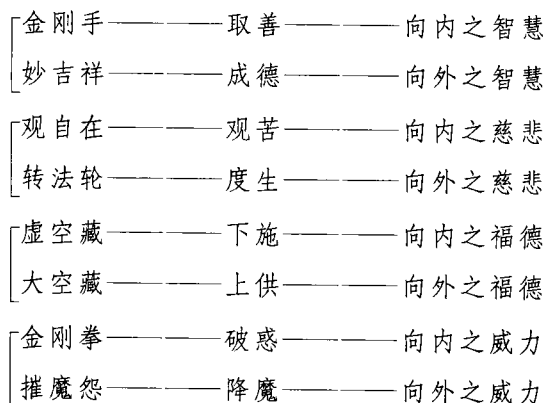 金刚手————取善————向内之智慧
妙吉祥————成德————向外之智慧
观自在————观苦————向内之慈悲
转法轮————度生————向外之慈悲
虚空藏————下施————向内之福德
大空藏————上供————向外之福德
金刚拳————破惑————向内之威力
摧魔怨————降魔————向外之威力